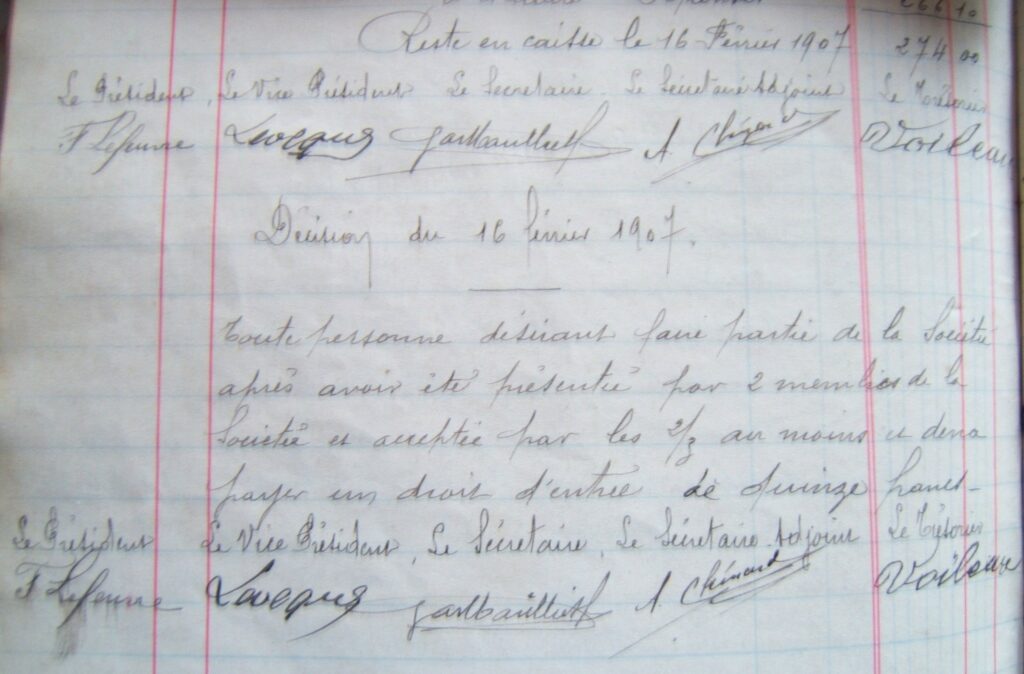 26610
Reste en caisse le 16 Février 1907 274 00
Le Président, Le Vice Président Le Secretaire Le Sécretaire Adjoint Le Trésorier
F Lefeuvre Levecque A Chénard Voileau
Décision du 16 février 1907.
Toute personne désirant faire partie de la Société
après avoir été présentée par 2 membres de la
Société et acceptée par les 2/3 au moins devra
payer un droit d'entrée de quinze francs
Le Président Le Vice Président, Le Sécretaire, Le Sécretaire Adjoint Le Trésorier
F Lefeuvre Levecque A Chénard Voileau